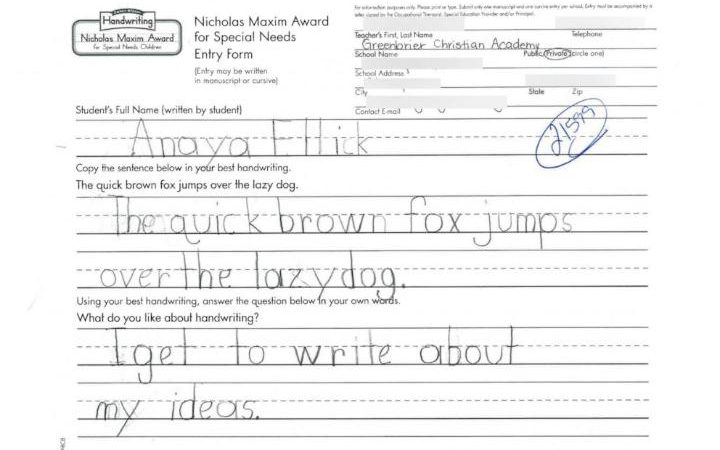 Handwriting
Nicholas Maxim Award
for Special Needs Children
Nicholas Maxim Award
for Special Needs
Entry Form
(Entry may be written
in manuscript or cursive)
For information purposes only. Please print or type. Submit only one manuscript and one cursive entry per school. Entry must be accompanied by a
letter signed by the Occupational Therapist, Special Education Provider and/or Principal.
Teacher's First, Last Name Telephone
Greenbrier Christian Academy
School Name Public/Private (circle one)
School Address
City State Zip
Contact E-mail
21599
Student's Full Name (written by student)
Anaya Ellick
Copy the sentence below in your best handwriting.
The quick brown fox jumps over the lazy dog.
The quick brown fox jumps
over the lazy dog.
Using your best handwriting, answer the question below in your own words.
What do you like about handwriting?
I get to write about
my ideas.